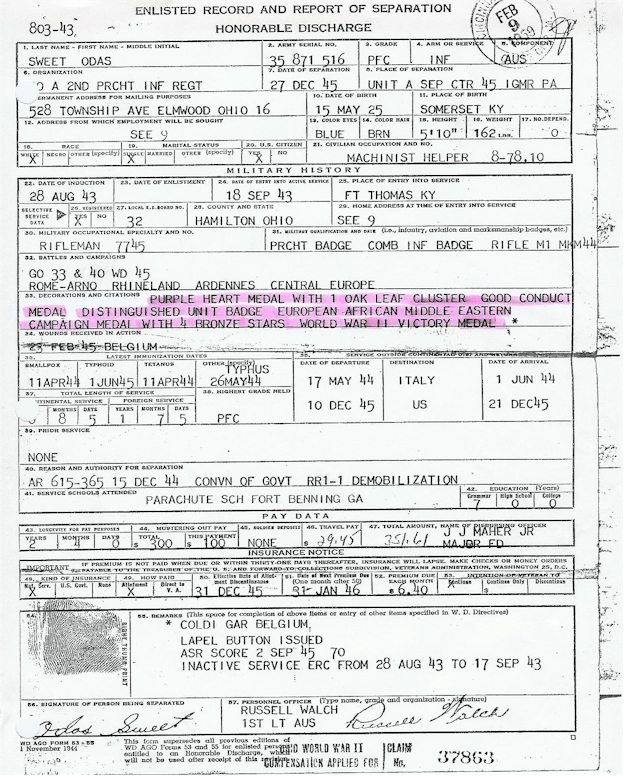 ENLISTED RECORD AND REPORT OF SEPARATION
803-43 HONORABLE DISCHARGE
FEB 9
1. LAST NAME - FIRST NAME - MIDDLE INITIAL 2. ARMY SERIAL NO. 3. GRADE 4. ARM OR SERVICE 5. COMPONENT
SWEET ODAS 35 871 516 PFC INF AUS
6. ORGANIZATION 7. DATE OF SEPARATION 8. PLACE OF SEPARATION
A 2ND PRCHT INF REGT 27 DEC 45 UNIT A SEP CTR 45 IGMR PA
PERMANENT ADDRESS FOR MAILING PURPOSES 10. DATE OF BIRTH 11. PLACE OF BIRTH
528 TOWNSHIP AVE ELMWOOD OHIO 16 15 MAY 25 SOMERSET KY
12. ADDRESS FROM WHICH EMPLOYMENT WILL BE SOUGHT 13. COLOR EYES 14. COLOR HAIR 15. HEIGHT 16. WEIGHT 17. NO. DEPEND.
SEE 9 BLUE BRN 5'10" 162 LBS. 0
18. RACE 19. MARITAL STATUS 20. U.S. CITIZEN 21. CIVILIAN OCCUPATION AND NO.
WHITE NEGRO OTHER (specify) SINGLE MARRIED OTHER (specify) YES NO
X X X MACHINIST HELPER 8-78.10
MILITARY HISTORY
22. DATE OF INDUCTION 23. DATE OF ENLISTMENT 24. DATE OF ENTRY INTO ACTIVE SERVICE 25. PLACE OF ENTRY INTO SERVICE
28 AUG 43 18 SEP 43 FT THOMAS KY
SELECTIVE SERVICE DATA 26. REGISTERED YES NO 27. LOCAL S.S. BOARD NO. 28. COUNTY AND STATE 29. HOME ADDRESS AT TIME OF ENTRY INTO SERVICE
X 32 HAMILTON OHIO SEE 9
30. MILITARY OCCUPATIONAL SPECIALTY AND NO. 31. MILITARY QUALIFICATION AND DATE (i.e., infantry, aviation and marksmanship badges, etc.)
RIFLEMAN 7745 PRCHT BADGE COMB INF BADGE RIFLE M1 MKM44
32. BATTLES AND CAMPAIGNS
GO 33 & 40 WD 45
ROME-ARNO RHINELAND ARDENNES CENTRAL EUROPE
33. DECORATIONS AND CITATIONS PURPLE HEART MEDAL WITH 1 OAK LEAF CLUSTER GOOD CONDUCT
MEDAL DISTINGUISHED UNIT BADGE EUROPEAN AFRICAN MIDDLE EASTERN
CAMPAIGN MEDAL WITH 4 BRONZE STARS WORLD WAR II VICTORY MEDAL *
34. WOUNDS RECEIVED IN ACTION
FEB 45 BELGIUM
35. LATEST IMMUNIZATION DATES 36. SERVICE OUTSIDE CONTINENTAL
SMALLPOX TYPHOID TETANUS OTHER (specify) TYPHUS DATE OF DEPARTURE DESTINATION DATE OF ARRIVAL
11APR44 1JUN45 11APR44 26MAY44 17 MAY 44 ITALY 1 JUN 44
37. TOTAL LENGTH OF SERVICE 38. HIGHEST GRADE HELD
CONTINENTAL SERVICE FOREIGN SERVICE 10 DEC 45 US 21 DEC45
MONTHS DAYS YEARS MONTHS DAYS
8 5 1 7 5 PFC
39. PRIOR SERVICE
NONE
40. REASON AND AUTHORITY FOR SEPARATION
AR 615-365 15 DEC 44 CONVN OF GOVT RR1-1 DEMOBILIZATION
41. SERVICE SCHOOLS ATTENDED 42. EDUCATION (Years)
PARACHUTE SCH FORT BENNING GA Grammar High School College
7 0 0
PAY DATA
43. LONGEVITY FOR PAY PURPOSES 44. MUSTERING OUT PAY 45. SOLDIER DEPOSITS 46. TRAVEL PAY 47. TOTAL AMOUNT, NAME OF DISBURSING OFFICER
YEARS MONTHS DAYS TOTAL THIS PAYMENT J J MAHER JR
2 4 0 $300 $100 NONE $29.45 351.61 MAJOR FD
INSURANCE NOTICE
IMPORTANT IF PREMIUM IS NOT PAID WHEN DUE OR WITHIN THIRTY-ONE DAYS THEREAFTER, INSURANCE WILL LAPSE. MAKE CHECKS OR MONEY ORDERS
PAYABLE TO THE TREASURER OF THE U. S. AND FORWARD TO COLLECTIONS SUBDIVISION, VETERANS ADMINISTRATION, WASHINGTON 25, D.C.
48. KIND OF INSURANCE 49. HOW PAID 50. Effective Date of Allotment Discontinuance 51. Date of Next Premium Due (One month after 50) 52. PREMIUM DUE EACH MONTH 53. INTENTION OF VETERAN TO
Nat. Serv. U.S. Govt. None Allotment Direct to V. A. Continue Continue Only Discontinue
X X 31 DEC 45 31 JAN 46 $6.40 X
54. 55. REMARKS (This space for completion of above items or entry of other items specified in W. D. Directives)
* COLDI GAR BELGIUM,
LAPEL BUTTON ISSUED
ASR SCORE 2 SEP 45 70
INACTIVE SERVICE ERC FROM 28 AUG 43 TO 17 SEP 43
THUMB PRINT
56. SIGNATURE OF PERSON BEING SEPARATED 57. PERSONNEL OFFICER (Type name, grade and organization - signature)
RUSSELL WALCH
Odas Sweet 1ST LT AUS Russell Walch
WD AGO FORM 53 - 55
1 November 1944
This form supersedes all previous editions of
WD AGO Forms 53 and 55 for enlisted persons
entitled to an Honorable Discharge, which
will not be used after receipt of this revision.
WORLD WAR II
COMPENSATION APPLIED FOR
CLAIM
No. 37863